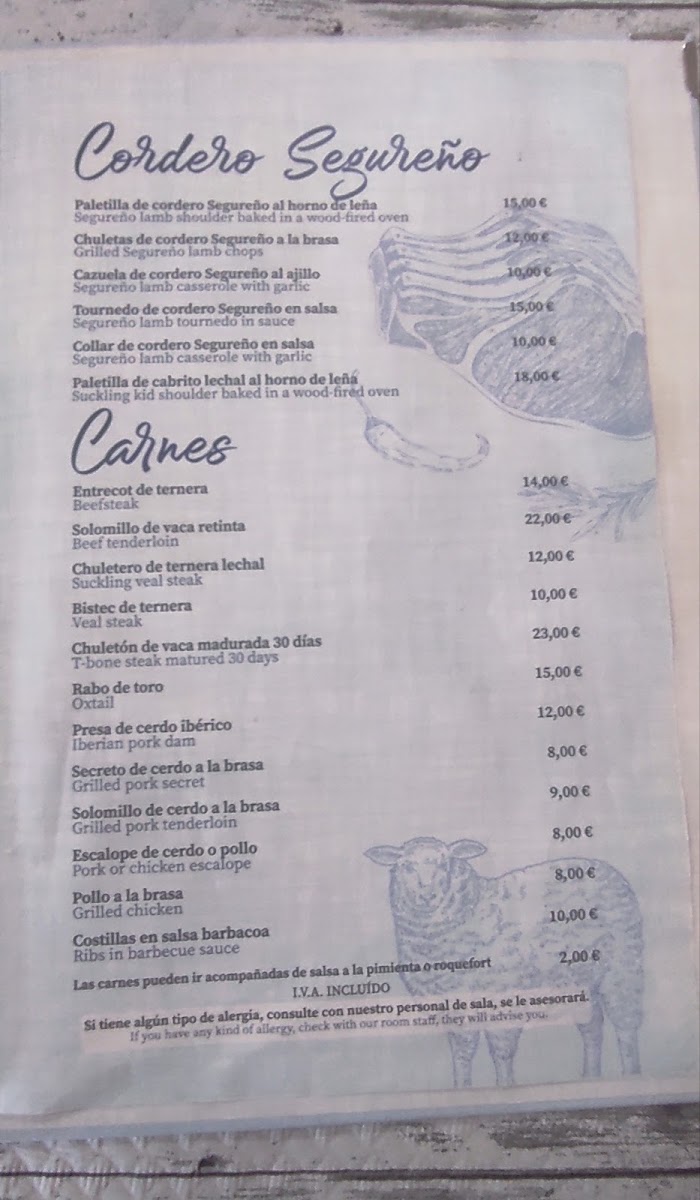 Cordero Segureño
Paletilla de cordero Segureño al horno de leña 15,00 €
Segureño lamb shoulder baked in a wood-fired oven
Chuletas de cordero Segureño a la brasa 12,00 €
Grilled Segureño lamb chops
Cazuela de cordero Segureño al ajillo 10,00 €
Segureño lamb casserole with garlic
Tournedo de cordero Segureño en salsa 15,00 €
Segureño lamb tournedo in sauce
Collar de cordero Segureño en salsa 10,00 €
Segureño lamb casserole with garlic
Paletilla de cabrito lechal al horno de leña 18,00 €
Suckling kid shoulder baked in a wood-fired oven
Carnes
Entrecot de ternera 14,00 €
Beefsteak
Solomillo de vaca retinta 22,00 €
Beef tenderloin
Chuletero de ternera lechal 12,00 €
Suckling veal steak
Bistec de ternera 10,00 €
Veal steak
Chuletón de vaca madurada 30 días 23,00 €
T-bone steak matured 30 days
Rabo de toro 15,00 €
Oxtail
Presa de cerdo ibérico 12,00 €
Iberian pork dam
Secreto de cerdo a la brasa 8,00 €
Grilled pork secret
Solomillo de cerdo a la brasa 9,00 €
Grilled pork tenderloin
Escalope de cerdo o pollo 8,00 €
Pork or chicken escalope
Pollo a la brasa 8,00 €
Grilled chicken
Costillas en salsa barbacoa 10,00 €
Ribs in barbecue sauce
Las carnes pueden ir acompañadas de salsa a la pimienta o roquefort 2,00 €
I.V.A. INCLUÍDO
Si tiene algún tipo de alergia, consulte con nuestro personal de sala, se le asesorará.
If you have any kind of allergy, check with our room staff, they will advise you.